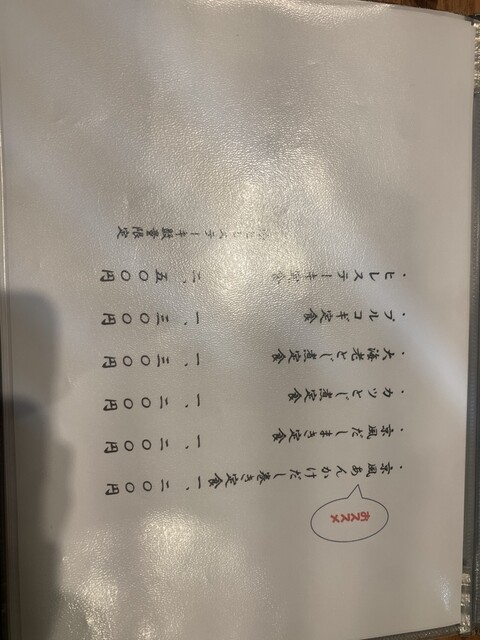 おススメ
・京風あんかけだし巻き定食 一、二〇〇円
・京風だしまき定食 一、二〇〇円
・カツとじ煮定食 一、二〇〇円
・大海老とじ煮定食 一、三〇〇円
・プルコギ定食 一、三〇〇円
・ヒレステーキ定食 二、五〇〇円
※ヒレステーキ数量限定